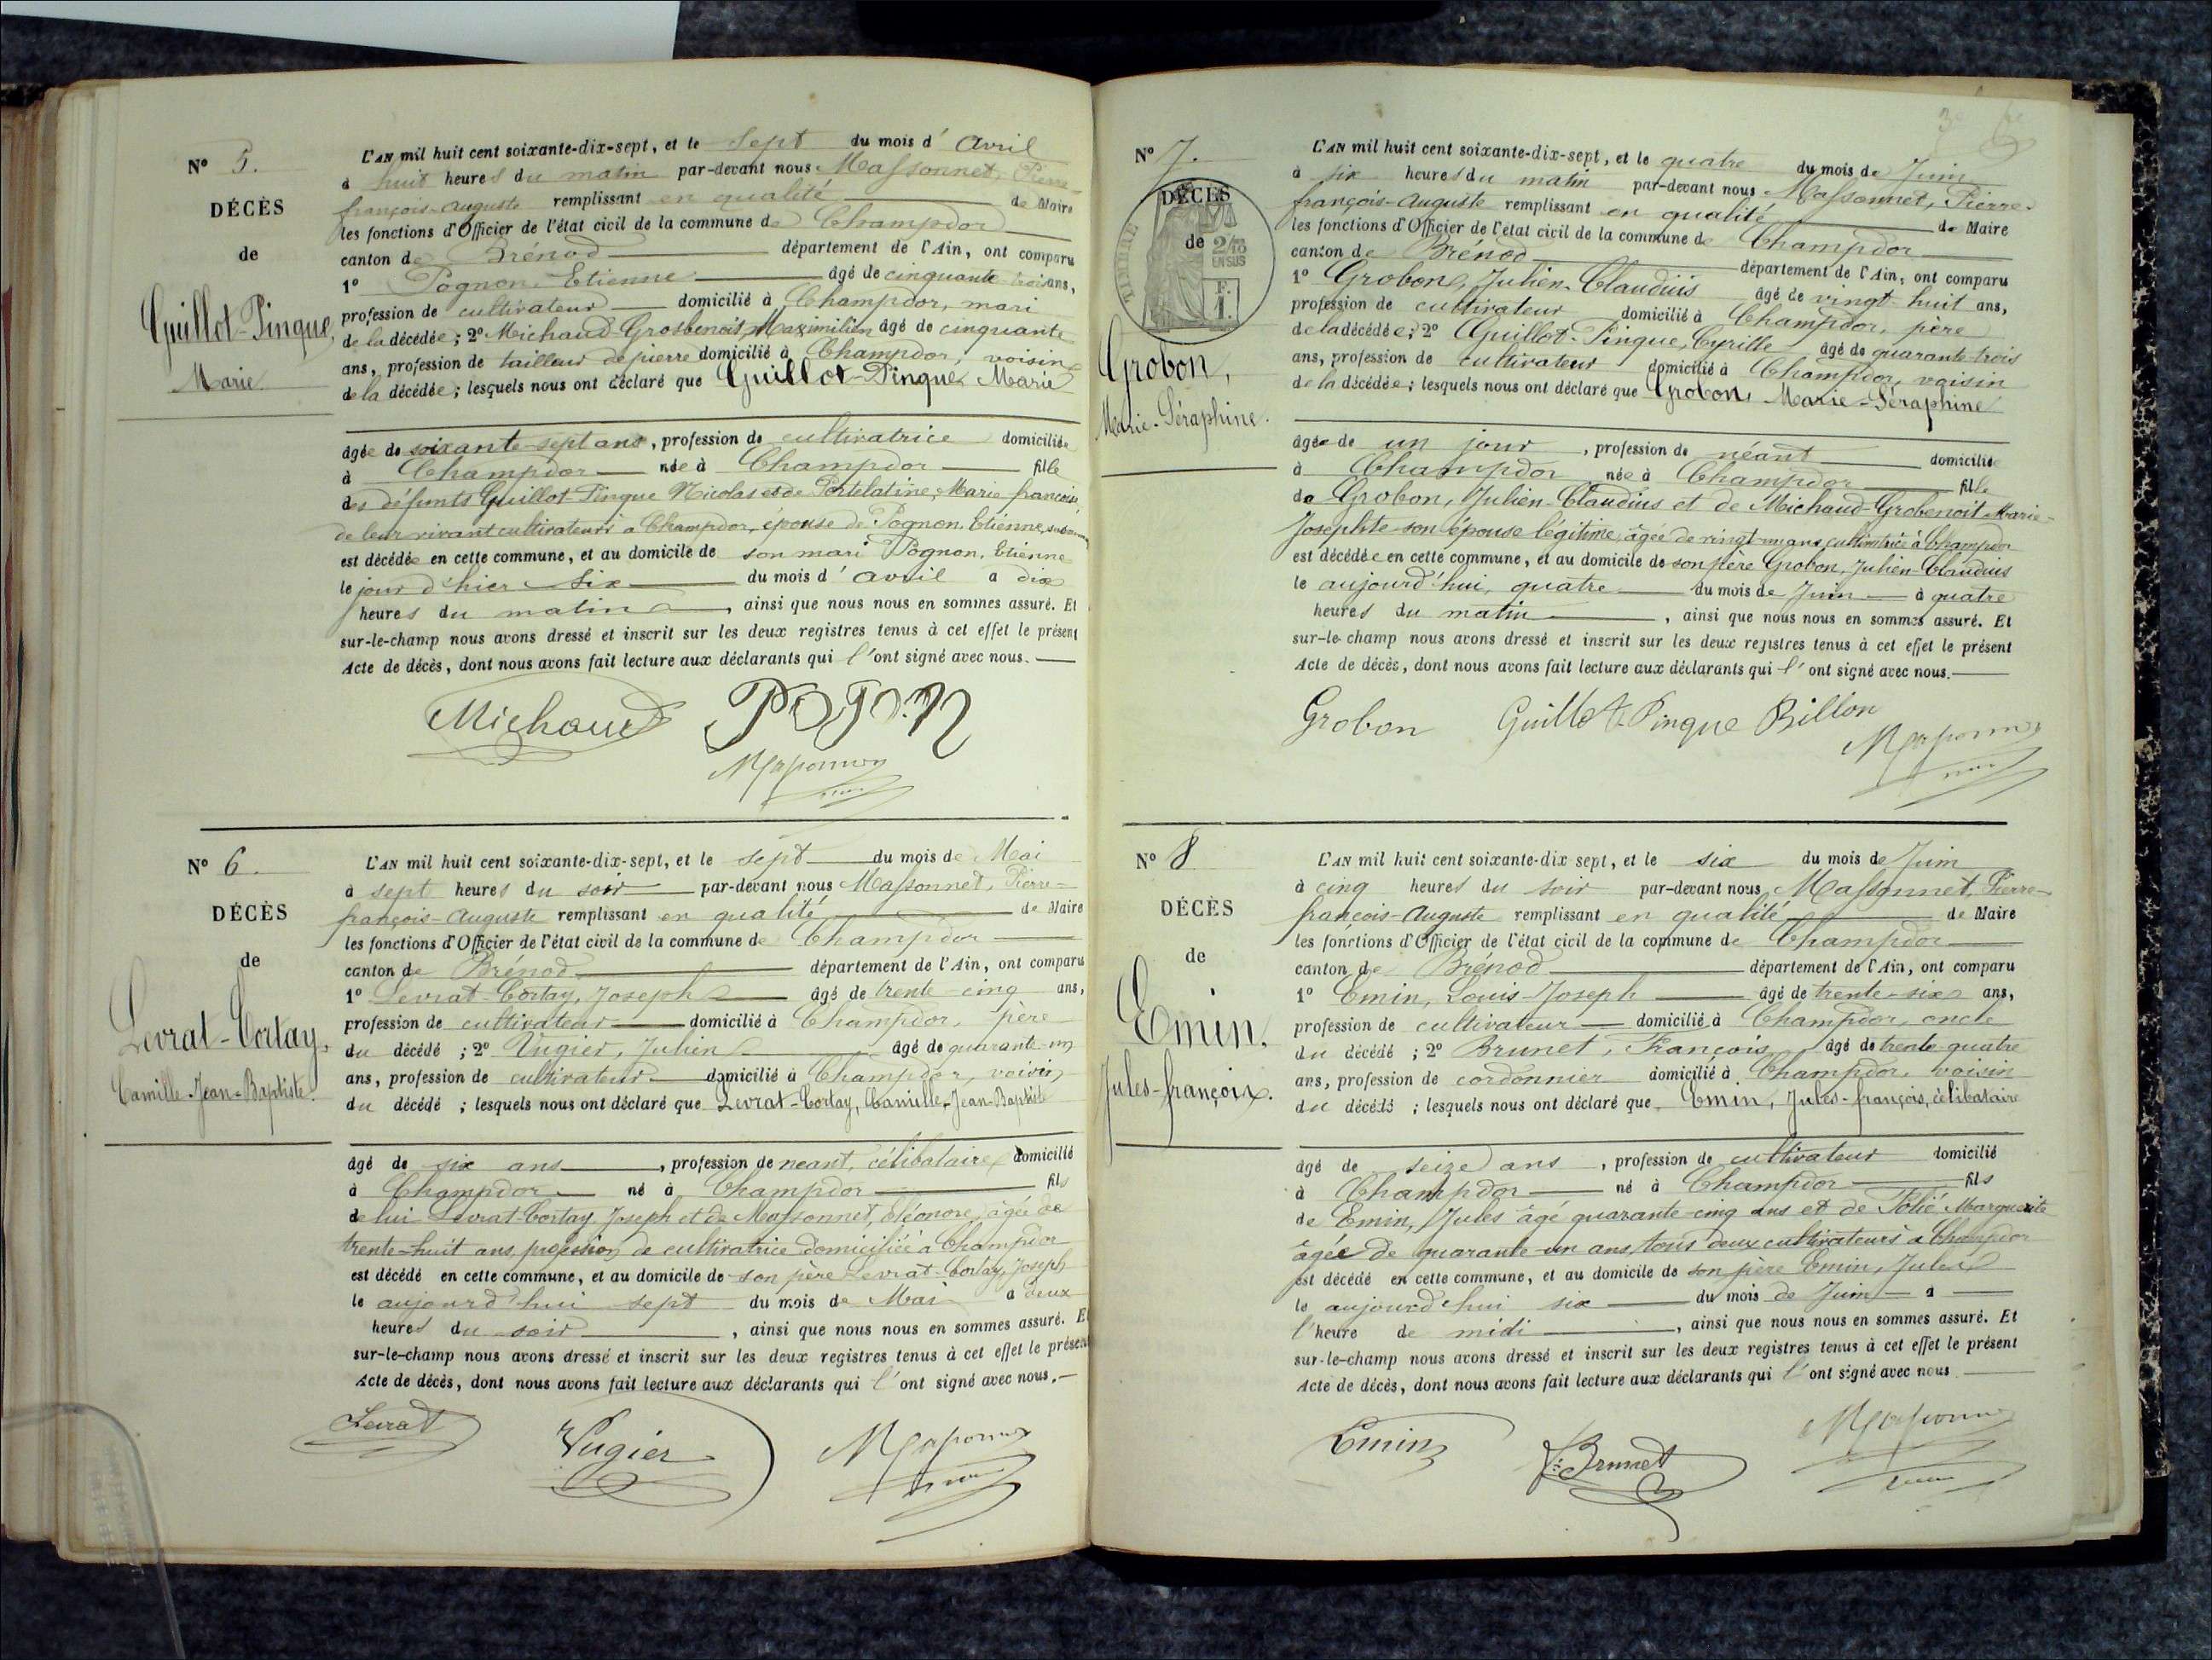 Nº 5.
DÉCÈS
de
Guillot-Pinque,
Marie
L'AN mil huit cent soixante-dix-sept, et le sept du mois d' avril
à huit heures du matin par-devant nous Massonnet, Pierre-
françois-auguste remplissant en qualité de Maire
les fonctions d'Officier de l'état civil de la commune de Champdor
canton de Brénod département de l'Ain, ont comparu
1º Pognon, Etienne âgé de cinquante trois ans,
profession de cultivateur domicilié à Champdor, mari
de la décédée; 2º Michaud-Grosbenoit, Maximilien âgé de cinquante
ans, profession de tailleur de pierre domicilié à Champdor, voisin
de la décédée; lesquels nous ont déclaré que Guillot-Pinque, Marie
âgée de soixante-sept ans, profession de cultivatrice domiciliée
à Champdor née à Champdor fille
des défunts Guillot-Pinque Nicolas et de Portelatine, Marie françoise
de leur vivant cultivateurs à Champdor, épouse de Pognon, Etienne,
est décédée en cette commune, et au domicile de son mari Pognon, Etienne
le jour d'hier six du mois d' avril à dix
heures du matin, ainsi que nous nous en sommes assuré. Et
sur-le-champ nous avons dressé et inscrit sur les deux registres tenus à cet effet le présent
Acte de décès, dont nous avons fait lecture aux déclarants qui l'ont signé avec nous.
Michaud POGON
Massonnet
Nº 6.
DÉCÈS
de
Levrat-Cortay,
Camille-Jean-Baptiste.
L'AN mil huit cent soixante-dix-sept, et le sept du mois de Mai
à sept heures du soir par-devant nous Massonnet, Pierre-
françois-auguste remplissant en qualité de Maire
les fonctions d'Officier de l'état civil de la commune de Champdor
canton de Brénod département de l'Ain, ont comparu
1º Levrat-Cortay, Joseph âgé de trente-cinq ans,
profession de cultivateur domicilié à Champdor, père
du décédé; 2º Vugier, Julien âgé de quarante-un
ans, profession de cultivateur domicilié à Champdor, voisin
du décédé; lesquels nous ont déclaré que Levrat-Cortay, Camille-Jean-Baptiste
âgé de six ans, profession de néant, célibataire, domicilié
à Champdor né à Champdor fils
de lui Levrat-Cortay Joseph et de Massonnet, Eléonore, âgée de
trente-huit ans, profession de cultivatrice domiciliée à Champdor
est décédé en cette commune, et au domicile de son père Levrat-Cortay, Joseph
le aujourd'hui sept du mois de Mai à deux
heures du soir, ainsi que nous nous en sommes assuré. Et
sur-le-champ nous avons dressé et inscrit sur les deux registres tenus à cet effet le présent
Acte de décès, dont nous avons fait lecture aux déclarants qui l'ont signé avec nous.
Levrat Vugier Massonnet
Nº 7.
DÉCÈS
de
TIMBRE
2/10
EN SUS
F.
1.
Grobon,
Marie-Séraphine.
L'AN mil huit cent soixante-dix-sept, et le quatre du mois de Juin
à six heures du matin par-devant nous Massonnet, Pierre-
françois-auguste remplissant en qualité de Maire
les fonctions d'Officier de l'état civil de la commune de Champdor
canton de Brénod département de l'Ain, ont comparu
1º Grobon, Julien-Claudius âgé de vingt-huit ans,
profession de cultivateur domicilié à Champdor, père
de la décédée; 2º Guillot-Pinque, Cyrille âgé de quarante-trois
ans, profession de cultivateur domicilié à Champdor, voisin
de la décédée; lesquels nous ont déclaré que Grobon, Marie-Séraphine
âgée de un jour, profession de néant domiciliée
à Champdor née à Champdor fille
de Grobon, Julien-Claudius et de Michaud-Grobenoit Marie-
Josephte son épouse légitime, âgée de vingt-un ans, cultivatrice à Champdor
est décédée en cette commune, et au domicile de son père Grobon, Julien-Claudius
le aujourd'hui, quatre du mois de Juin à quatre
heures du matin, ainsi que nous nous en sommes assuré. Et
sur-le-champ nous avons dressé et inscrit sur les deux registres tenus à cet effet le présent
Acte de décès, dont nous avons fait lecture aux déclarants qui l'ont signé avec nous.
Grobon Guillot Pinque Billon
Massonnet
Nº 8
DÉCÈS
de
Emin,
Jules-françois.
L'AN mil huit cent soixante-dix-sept, et le six du mois de Juin
à cinq heures du soir par-devant nous Massonnet, Pierre-
françois-auguste remplissant en qualité de Maire
les fonctions d'Officier de l'état civil de la commune de Champdor
canton de Brénod département de l'Ain, ont comparu
1º Emin, Louis-Joseph âgé de trente-six ans,
profession de cultivateur domicilié à Champdor, oncle
du décédé; 2º Brunet, François âgé de trente-quatre
ans, profession de cordonnier domicilié à Champdor, voisin
du décédé; lesquels nous ont déclaré que Emin, Jules-françois, célibataire
âgé de seize ans, profession de cultivateur domicilié
à Champdor né à Champdor fils
de Emin, Jules âgé quarante-cinq ans et de Polié, Marguerite
âgée de quarante-un ans, tous deux cultivateurs à Champdor
est décédé en cette commune, et au domicile de son père Emin, Jules
le aujourd'hui six du mois de Juin à
l'heure de midi, ainsi que nous nous en sommes assuré. Et
sur-le-champ nous avons dressé et inscrit sur les deux registres tenus à cet effet le présent
Acte de décès, dont nous avons fait lecture aux déclarants qui l'ont signé avec nous
Emin Brunet Massonnet